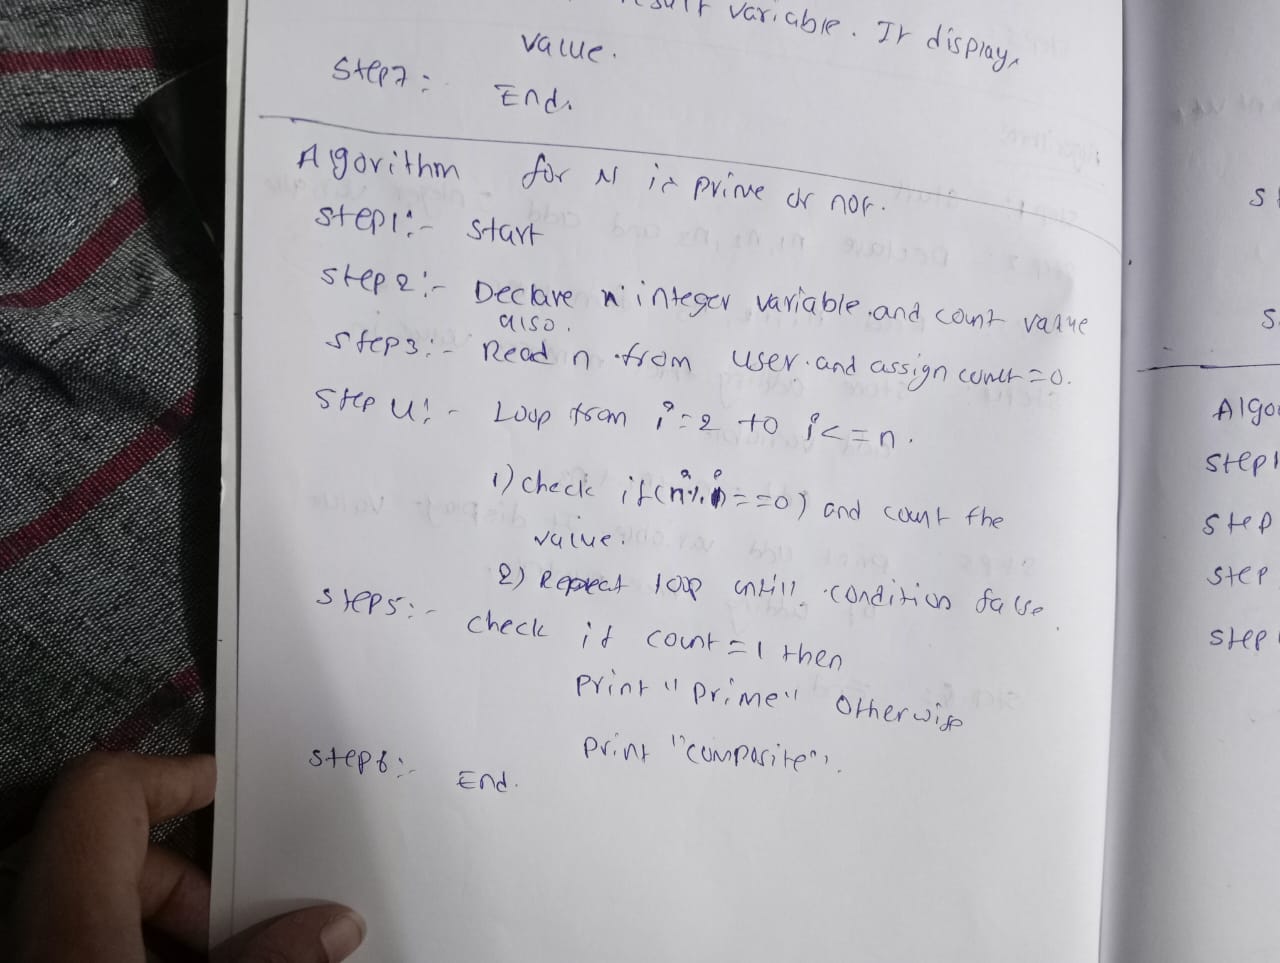 variable. It display
value.
Step7: End.
Algorithm for N is prime or not.
Step1:- Start
Step2:- Declare n integer variable and count value
also.
Step3:- Read n from user and assign count=0.
Step 4:- Loop from i=2 to i<=n.
1) check if(n%i==0) and count the
value.
2) Repeat loop untill condition false.
Step5:- check if count=1 then
print "prime" otherwise
print "composite".
Step6:- End.
S
S.
Algo
Step1
Step
Step
Step